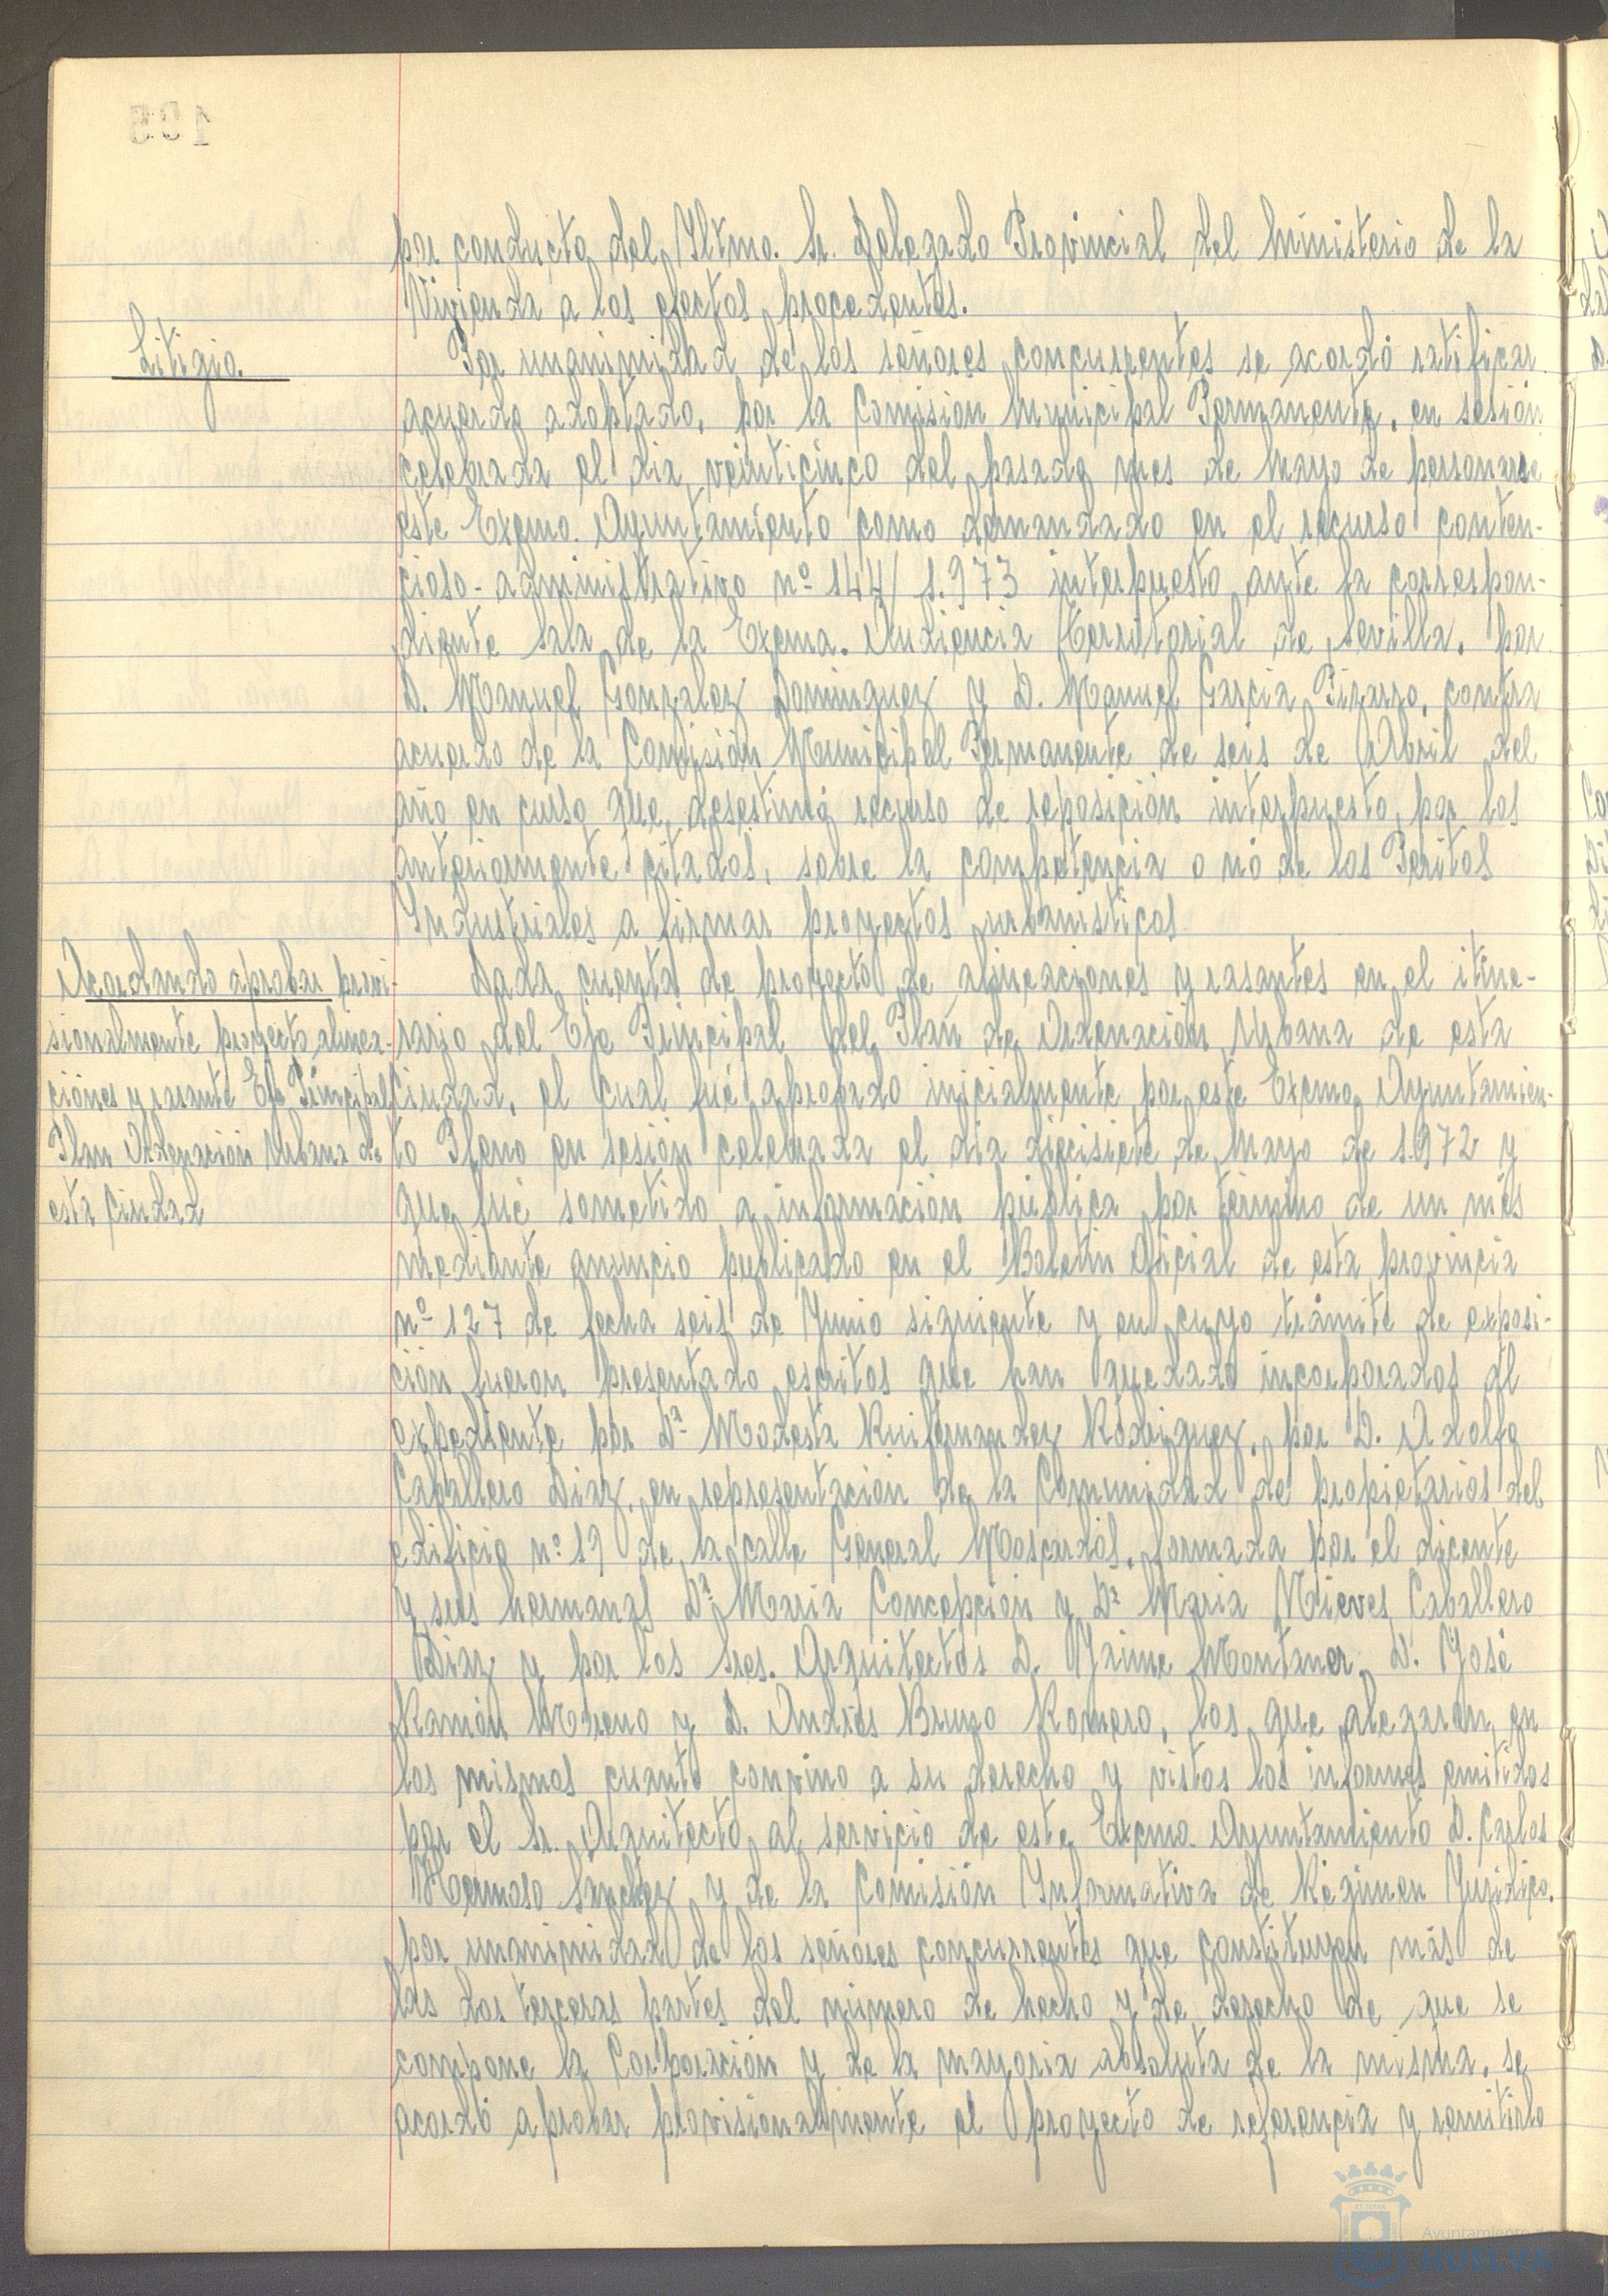 por conducto del Iltmo. Sr. Delegado Provincial del Ministerio de la
Vivienda a los efectos procedentes.
Litigio.
Por unanimidad de los señores concurrentes se acordó ratificar
acuerdo adoptado, por la Comisión Municipal Permanente, en sesión
celebrada el dia veinticinco del pasado mes de Mayo de personarse
este Excmo. Ayuntamiento como demandado en el recurso conten-
cioso-administrativo nº 144/1.973 interpuesto ante la correspon-
diente sala de la Excma. Audiencia Territorial de Sevilla, por
D. Manuel Gonzalez Dominguez y D. Manuel Garcia Pizarro, contra
acuerdo de la Comisión Municipal Permanente de seis de Abril del
año en curso que desestimó recurso de reposición interpuesto por los
anteriormente citados, sobre la competencia o nó de los Peritos
Industriales a firmar proyectos urbanisticos
Acordando aprobar provi-
sionalmente proyecto alinea-
ciónes y rasante Eje Principal
Plan Ordenación Urbana de
esta ciudad
Dada cuenta de proyecto de alineaciones y rasantes en el itine-
rario del Eje Principal del Plan de Ordenación Urbana de esta
ciudad, el cual fué aprobado inicialmente por este Excmo. Ayuntamien-
to Pleno en sesión celebrada el dia diecisiete de Mayo de 1.972 y
que fué sometido a información pública por término de un més
mediante anuncio publicado en el Boletin Oficial de esta provincia
nº 127 de fecha seis de Junio siguiente y en cuyo trámite de exposi-
ción fueron presentado escritos que han quedado incorporados al
expediente por Dª Modesta Ruifernandez Rodriguez, por D. Adolfo
Caballero Diaz, en representación de la Comunidad de propietarios del
edificio nº 19 de la calle General Moscardós, formada por el dicente
y sus hermanas Dª Maria Concepción y Dª Maria Nieves Caballero
Diaz y por los Sres. Arquitectos D. Jaime Montaner, D. José
Ramón Moreno y D. Andrés Bruzo Romero, los que alegaron en
los mismos cuanto convino a su derecho y vistos los informes emitidos
por el Sr. Arquitecto al servicio de este Excmo. Ayuntamiento D. Carlos
Hermoso Sanchez y de la Comisión Informativa de Régimen Juridico,
por unanimidad de los señores concurrentes que constituyen más de
las dos terceras partes del número de hecho y de derecho de que se
compone la Corporación y de la mayoria absoluta de la misma, se
acordó aprobar provisionalmente el proyecto de referencia y remitirlo
Ayuntamiento de
HUELVA